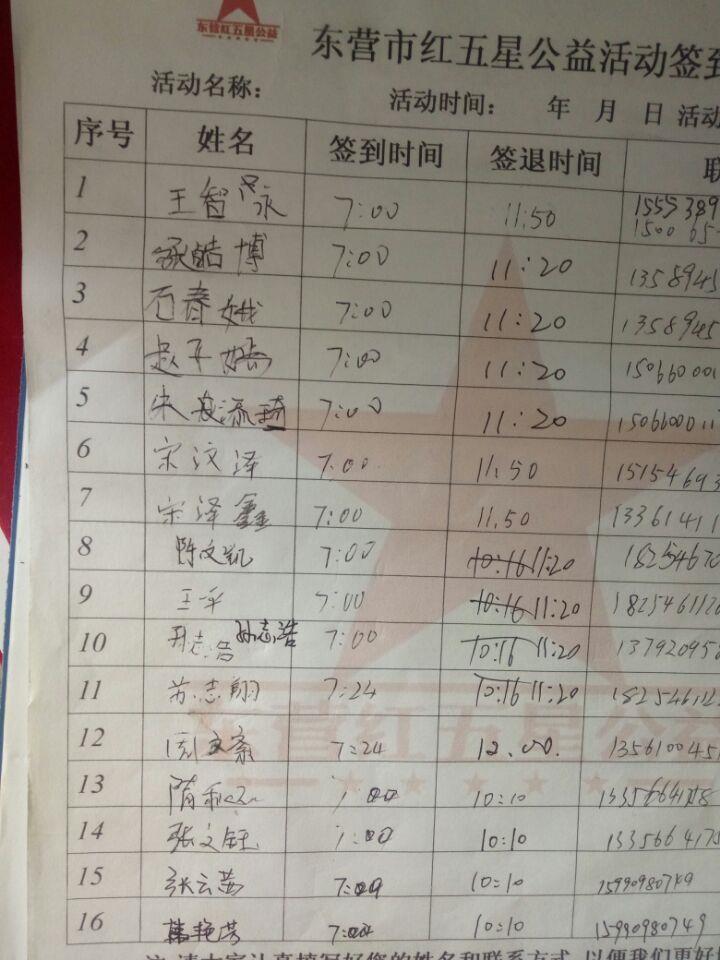 东营红五星公益
东营市红五星公益活动签到
活动名称： 活动时间： 年 月 日 活动
序号 姓名 签到时间 签退时间 联
1 王智永 7:00 11:50 1555389
150065
2 皓博 7:00 11:20 1358945
3 石春娥 7:00 11:20 1358945
4 赵子嫣 7:00 11:20 150660001
5 朱 琦 7:00 11:20 1506600011
6 宋汶泽 7:00 11.50 15154693
7 宋泽鑫 7:00 11.50 13361411
8 陈文凯 7:00 10:16 11:20 18254670
9 王平 7:00 10:16 11:20 1825461120
10 孙志浩 7:00 10:16 11:20 137920958
11 苏志翔 7:24 10:16 11:20 18254612
12 周文 7:24 12.00. 135610045
13 隋 7:00 10:10 133566417
14 张文钰 7:00 10:10 133566417
15 张云茜 7:00 10:10 15990980749
16 艳 7:00 10:10 15990980749
东营红五星公益
注:请大家认真填写好您的姓名和联系方式,以便我们更好